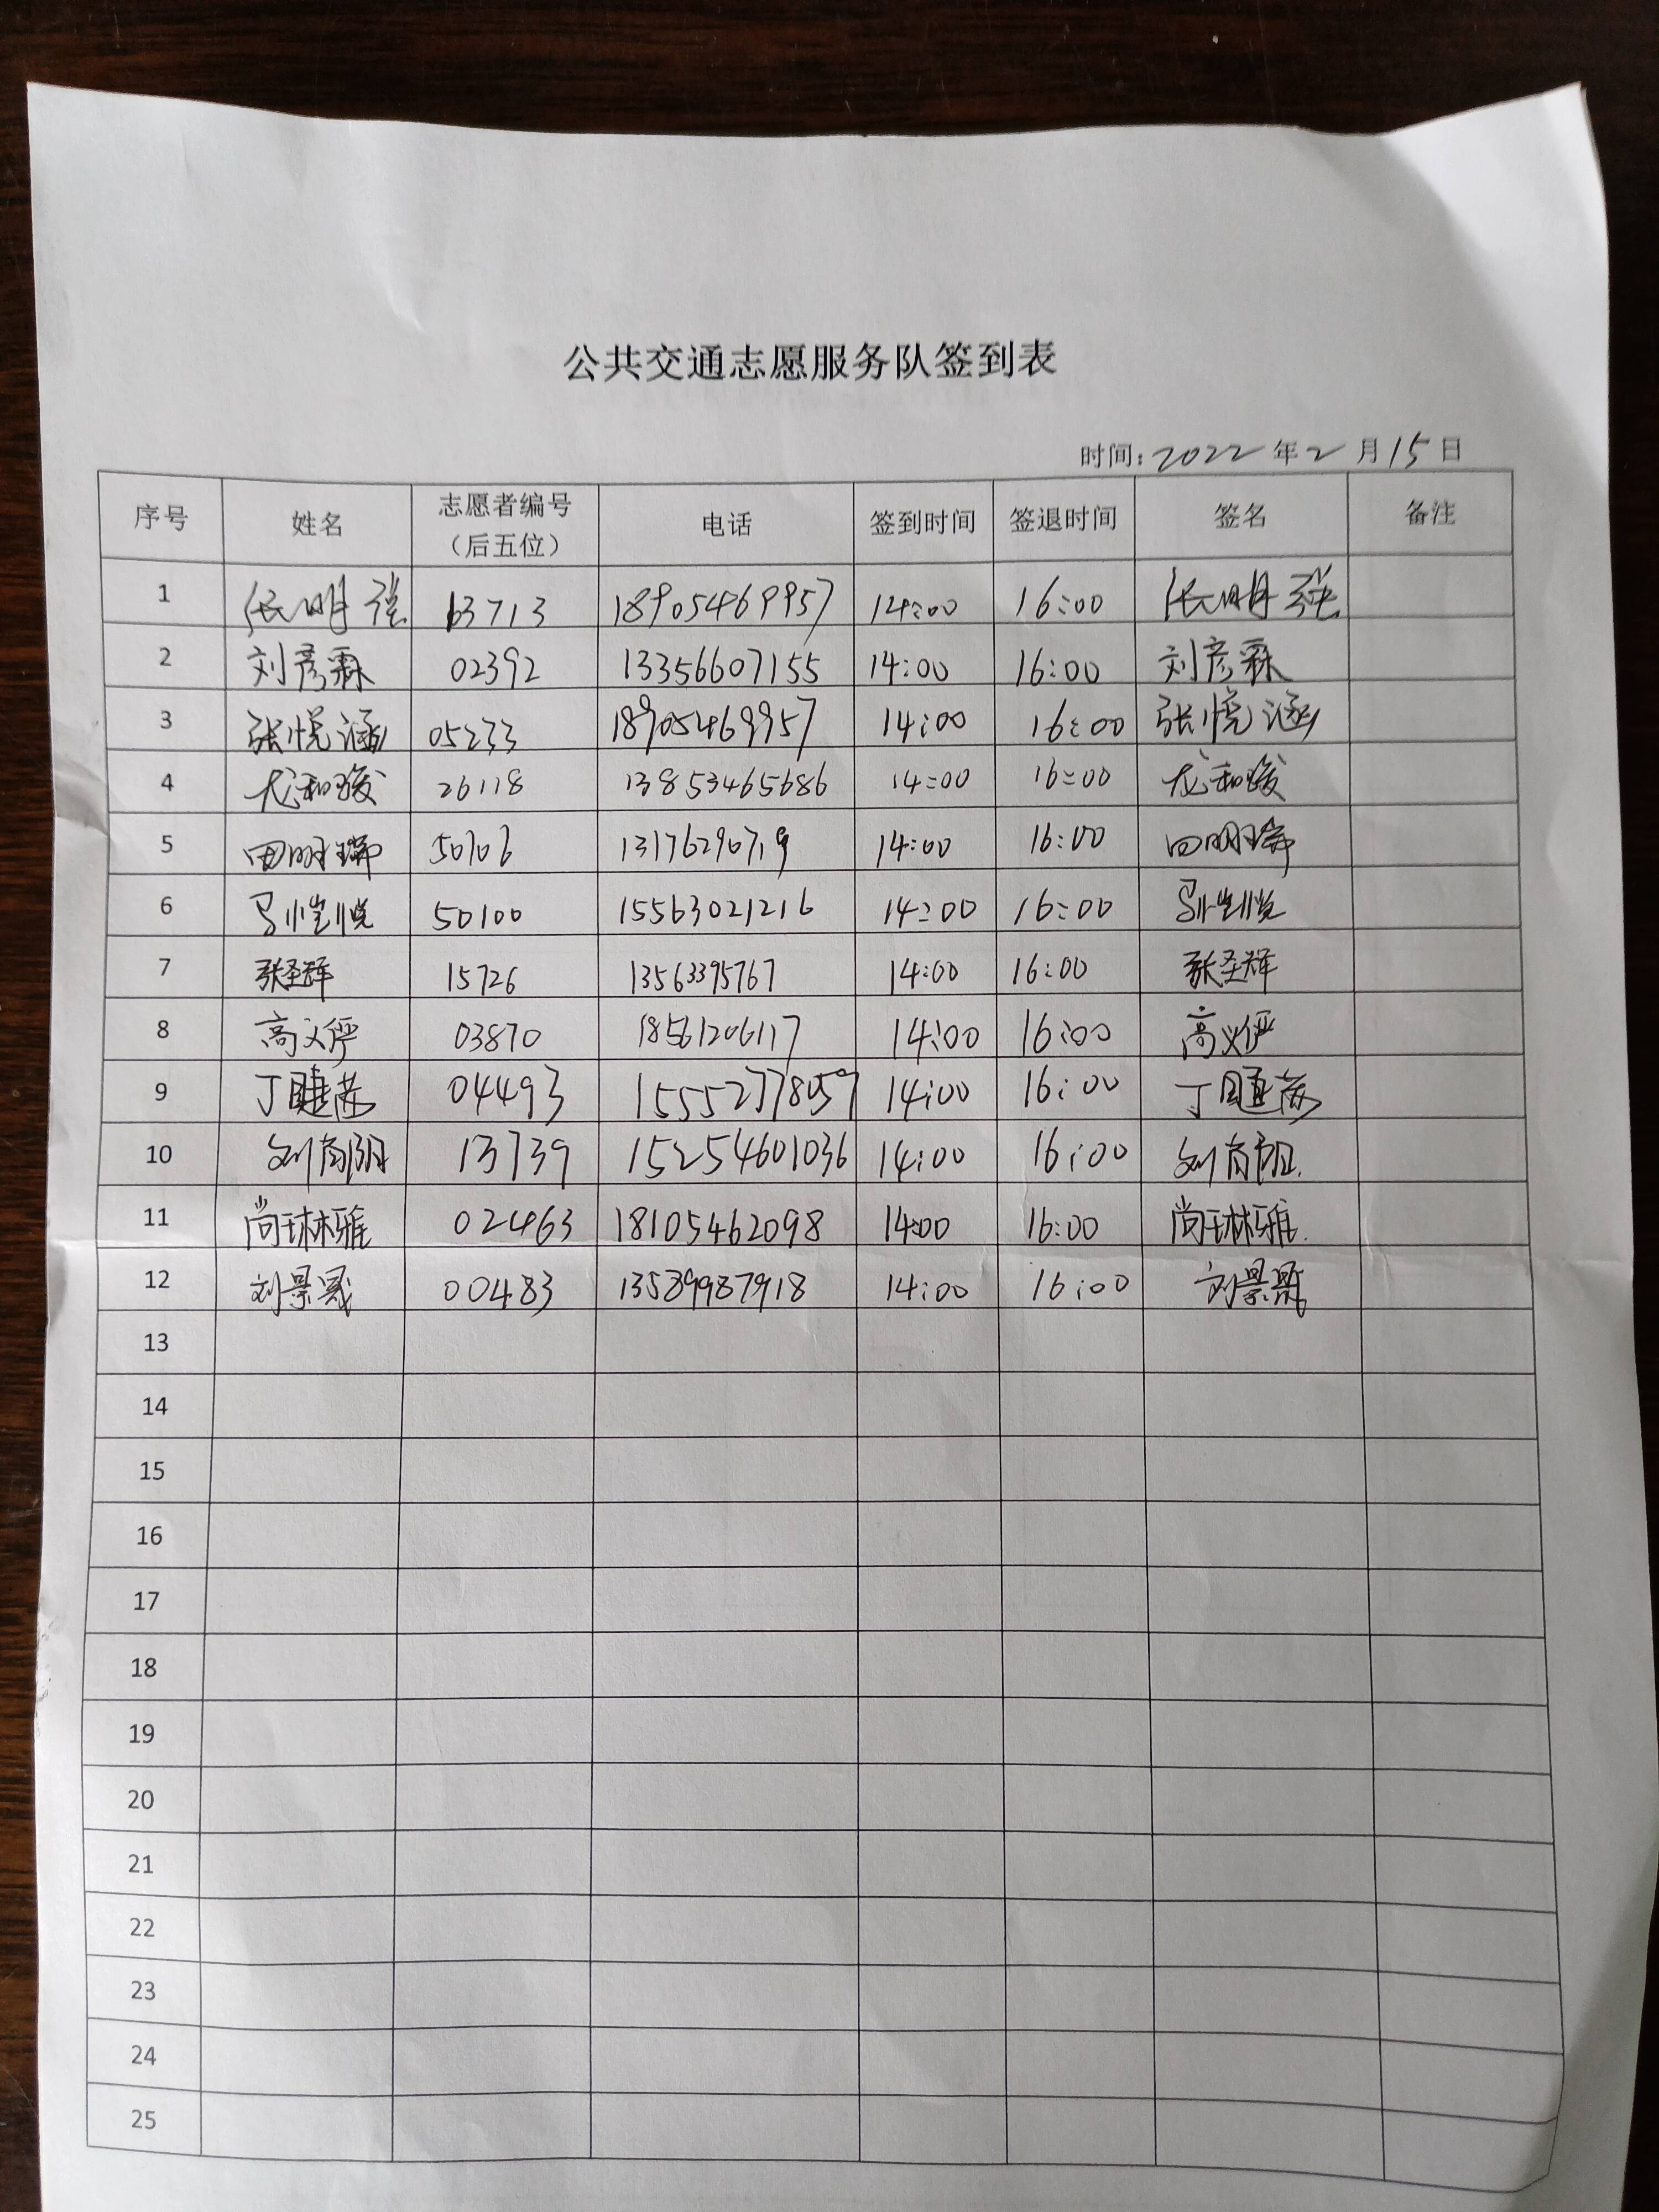 公共交通志愿服务队签到表
时间:2022年2月15日
序号 姓名 志愿者编号（后五位） 电话 签到时间 签退时间 签名 备注
1 张明强 63713 18905469957 14:00 16:00 张明强
2 刘彦霖 02392 13356607155 14:00 16:00 刘彦霖
3 张悦涵 05233 18905469957 14:00 16:00 张悦涵
4 尤和骏 26118 13853465686 14:00 16:00 尤和骏
5 田明瑞 50706 13176290719 14:00 16:00 田明瑞
6 马恺悦 50100 15563021216 14:00 16:00 马恺悦
7 张圣辉 15726 13563395767 14:00 16:00 张圣辉
8 高义俨 03870 18561206117 14:00 16:00 高义俨
9 丁睫 04493 15552778059 14:00 16:00 丁睫
10 刘尚阳 13739 15254601036 14:00 16:00 刘尚阳
11 尚琳雅 02463 18105462098 14:00 16:00 尚琳雅
12 刘景 00483 13589987918 14:00 16:00 刘景
13
14
15
16
17
18
19
20
21
22
23
24
25